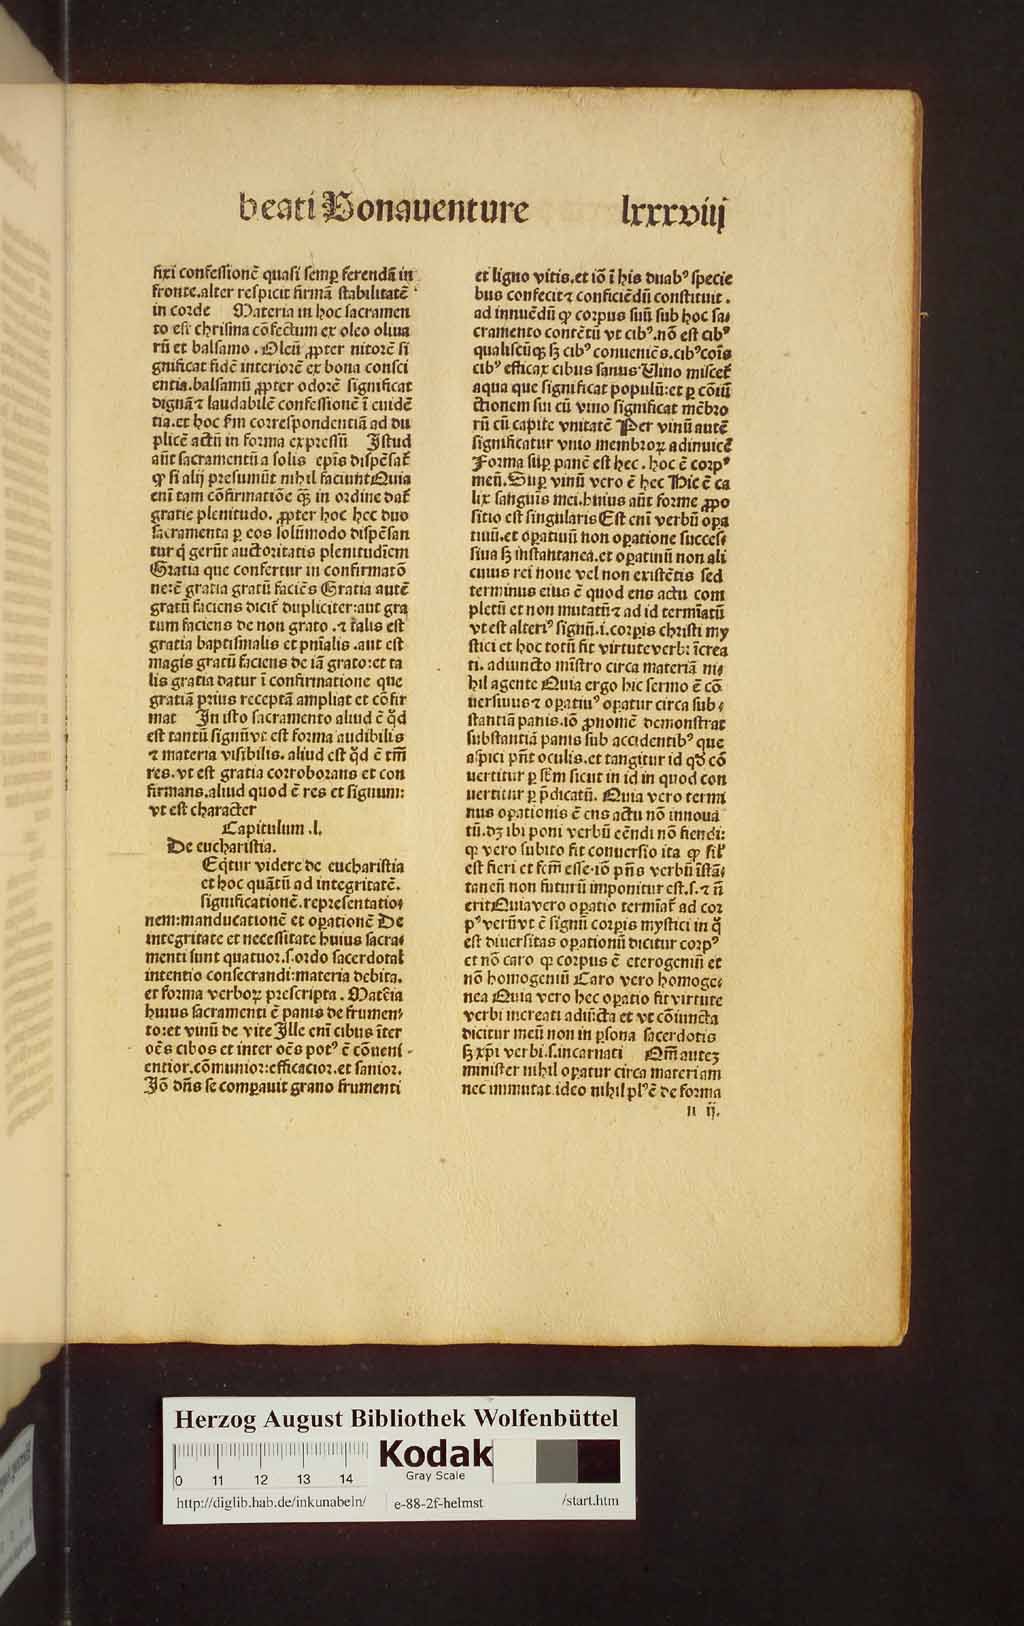 beati Bonauenture lxxxviij
fixi confessionē quasi semp̲ ferendā in
fronte.alter respicit firmā stabilitatē
in corde Materia in hoc sacramen
to est chrisma cōfectum ex oleo oliua
rū et balsamo. Oleū ꝓpter nitorē si
gnificat fidē interiorē ex bona consci
entia.balsamū ꝓpter odorē significat
dignā ⁊ laudabilē confessionē ī euidē
tia.et hoc ẜm correspondentiā ad du
plicē actū in forma expressū Istud
aūt sacramentū a solis ep̄is dispēsat̄
ꝙ si alij presumūt nihil faciunt Quia
eni tam cōfirmatiōe q̄ꝫ in ordine dat̄
gratie plenitudo. ꝓpter hoc hec duo
sacramenta ꝑ eos solūmodo dispēsan
tur q̇ gerūt auctoritatis plenitudīem
Gratia que confertur in confirmatō
ne:ē gratia gratū faciēs Gratia autē
gratū faciens dicit̄ dupliciter:aut gra
tum faciens de non grato .⁊ talis est
gratia baptismalis et pn̄ialis .aut est
magis gratū faciens de iā grato:et ta
lis gratia datur ī confirmatione que
gratiā prius receptā ampliat et cōfir
mat In isto sacramento aliud ē q̇d
est tantū signū vt est forma audibilis
⁊ materia visibilis. aliud est q̇d ē tm̄
res.vt est gratia corroborans et con
firmans.aliud quod ē res et signum:
vt est character
Capitulum .l.
De eucharistia.
Eq̄tur videre de eucharistia
et hoc quātū ad integritatē.
significationē.representatio⸗
nem:manducationē et oꝑationē De
integritate et necessitate huius sacra⸗
menti sunt quatuor.s.ordo sacerdotal̄
intentio consecrandi:materia debita.
et forma verboꝝ prescripta. Matēia
huius sacramenti ē panis de frumen⸗
to:et vinū de vite Ille enī cibus īter
oēs cibos et inter oēs potꝰ ē cōueni⸗
entior.cōmunior:efficacior.et sanior.
Iō dn̄s se comꝑauit grano frumenti
et ligno vitis.et iō ī his duabꝰ specie
bus confecit ⁊ conficiēdū constituit.
ad innuēdū ꝙ corpus suū sub hoc sa⸗
cramento contētū vt cibꝰ.nō est cibꝰ
qualiscūqꝫ sꝫ cibꝰ conueniēs.cibꝰ cōis
cibꝰ efficax cibus sanus Uino miscet̄
aqua que significat populū:et ꝑ cōiū
ctionem sui cū vino significat mēbro
rū cū capite vnitatē Per vinū autē
significatur vnio membroꝝ adinuicē
Forma suꝑ panē est hec . hoc ē corpꝰ
meū.Suꝑ vinū vero ē hec Hic ē ca
lix sanguis mei.huius aūt forme ꝓpo
sitio est singularis Est eni verbū oꝑa
tiuū.et oꝑatiuū non opatione succes⸗
siua sꝫ instantanea.et oꝑatiuū non ali
cuius rei noue vel non existētis sed
terminus eius ē quod ens actu com
pletū et non mutatū ⁊ ad id termīatū
vt est alteriꝰ signū.i.corꝑis christi my
stici et hoc totū fit virtute verbi īcrea
ti. adiuncto mīstro circa materiā ni⸗
hil agente Quia ergo hic sermo ē cō
uersiuus ⁊ oꝑatiuꝰ oꝑatur circa sub⸗
stantiā panis.iō ꝓnomē demonstrat
substantiā panis sub accidentibꝰ que
aspici pn̄t oculis.et tangitur id qd̄ cō
uertitur ꝑ sēm sicut in id in quod con
uertitur ꝑ p̄dicatū. Quia vero termi
nus opationis ē ens actu nō innoua
tū.dꝫ ibi poni verbū eēndi nō fiendi:
ꝙ vero subito fit conuersio ita ꝙ sil̄
est fieri et fcm̄ esse.iō pn̄s verbū īstā⸗
taneū non futurū imponitur est.s.⁊ n̄
erit Quia vero oꝑatio termīat̄ ad cor
pꝰ verū vt ē signū corꝑis mystici in q̇
est diuersitas opationū dicitur corpꝰ
et nō caro ꝙ corpus ē eterogeniū et
nō homogeniū Caro vero homoge⸗
nea Quia vero hec oꝑatio fit virtute
verbi increati adiūcta et vt cōiuncta
dicitur meū non in ꝑsona sacerdotis
sꝫ xp̄i verbi.s.incarnati Qm̄ autez
minister nihil oꝑatur circa materiam
nec immutat.ideo nihil plꝰ ē de forma
n ij.
Herzog August Bibliothek Wolfenbüttel
0 11 12 13 14
Kodak
Gray Scale
http://diglib.hab.de/inkunabeln/ e-88-2f-helmst /start.htm